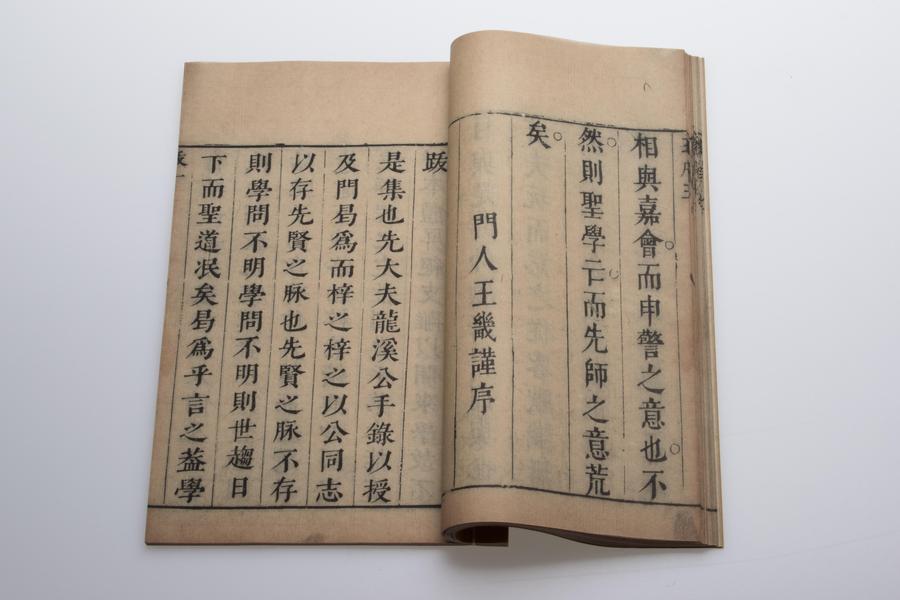 相與嘉會而申警之意也不
然則聖學亡而先師之意荒
矣
門人王畿謹序
跋
是集也先大夫龍溪公手錄以授
及門曷爲而梓之梓之以公同志
以存先賢之脉也先賢之脉不存
則學問不明學問不明則世趨日
下而聖道冺矣曷爲乎言之葢學